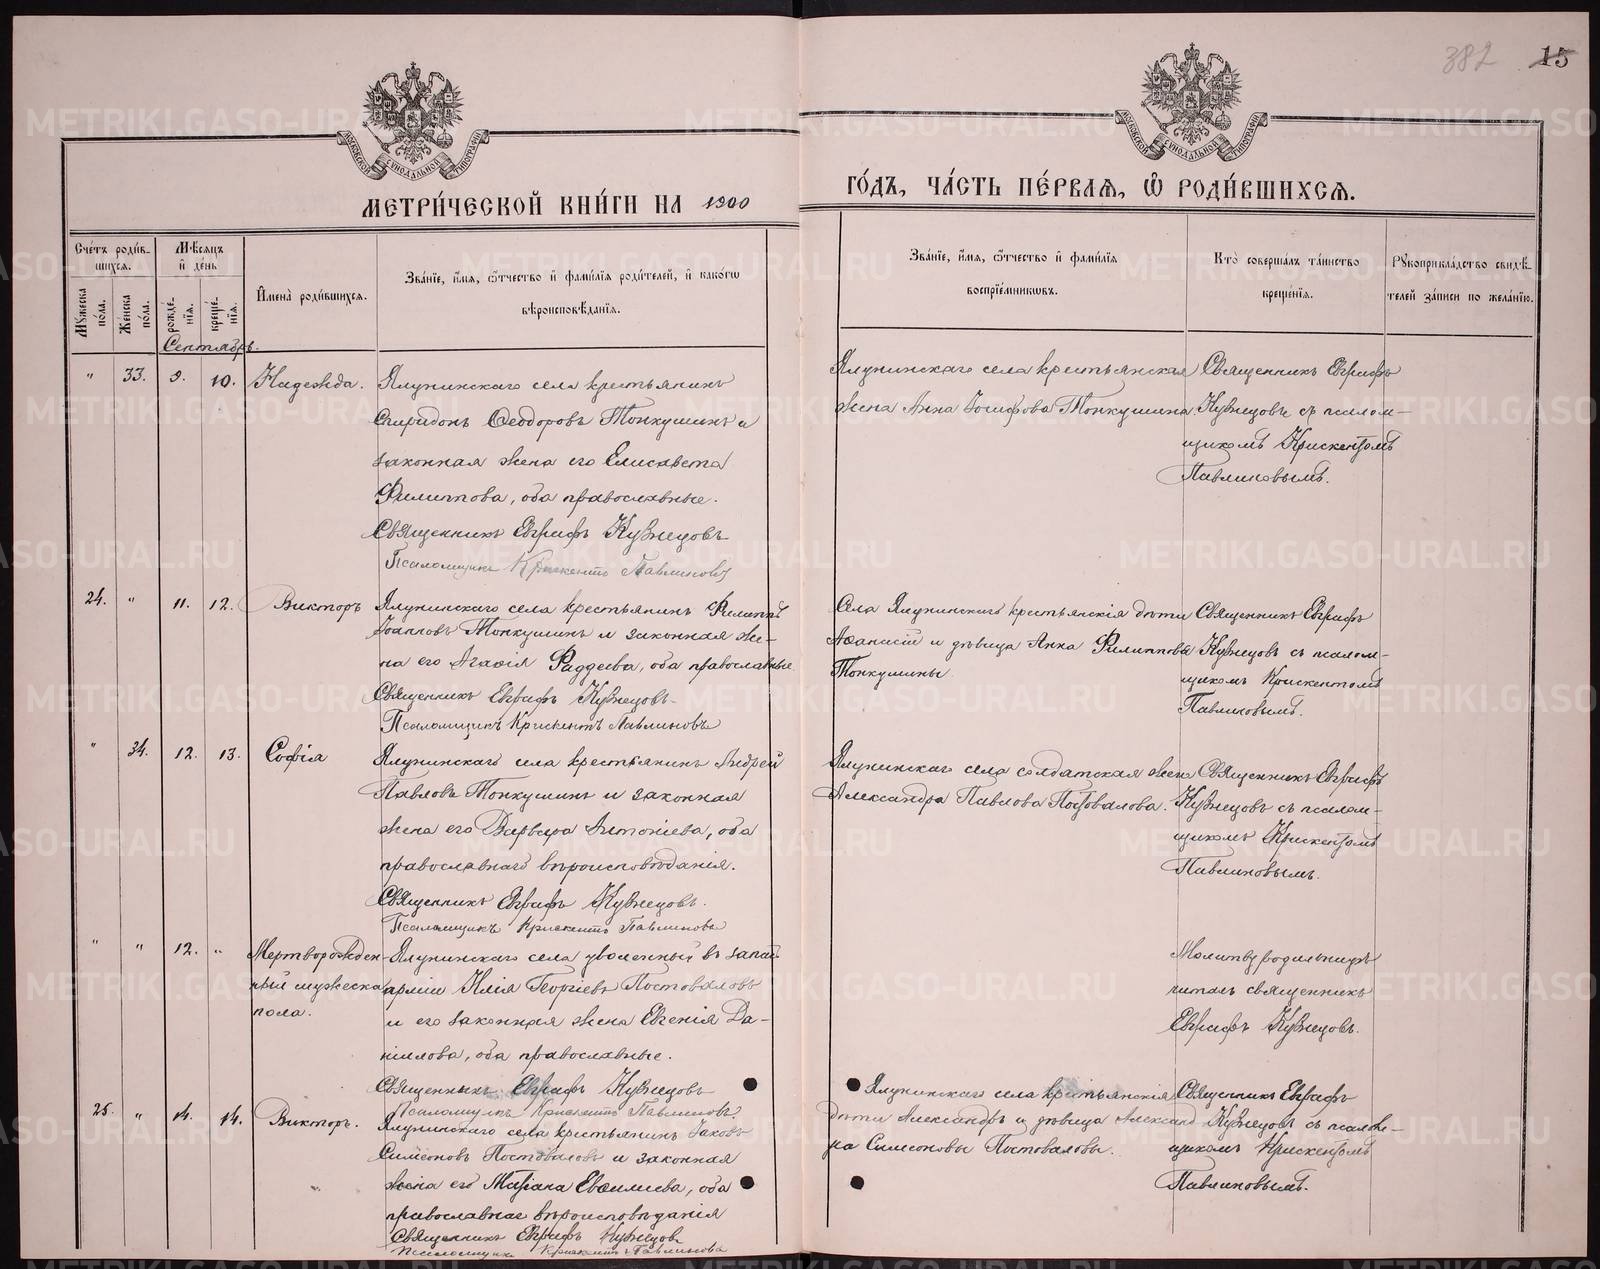 382 15
МЕТРИ́ЧЕСКОЙ КНИ́ГИ НА 1900
ГО́ДЪ, ЧА́СТЬ ПЕ́РВАЯ, Ѽ РОДИ́ВШИХСЯ.
МОСКОВСКОЙ СѴНОДАЛЬНОЙ ТИПОГРАФІИ
МОСКОВСКОЙ СѴНОДАЛЬНОЙ ТИПОГРАФІИ
Сче́тъ роди́в-
шихся.
Мѣ́сяцъ
и҆ де́нь
Мꙋ́жеска
по́ла.
Же́нска
по́ла.
рожде́-
нїя.
креще́-
нїя.
И҆мена̀ роди́вшихся.
Зва́нїе, и҆́мя, ѻ҆́тчество и҆ фами́лїя роди́телей, и҆ како́гѡ
вѣроисповѣ́данїя.
Зва́нїе, и҆́мя, ѻ҆́тчество и҆ фами́лїя
воспрїе́мникѡвъ.
Кто̀ соверша́лъ та́инство
креще́нїя.
Рꙋкоприкла́дство свидѣ́-
телей за́писи по жела́нїю.
Сентябрь.
" 33. 9. 10. Надежда.
Ялунинскаго села крестьянинъ
Спиридонъ Ѳеодоровъ Топкушинъ и
законная жена его Елисавета
Филиппова, оба православные.
Священникъ Евграфъ Кузнецовъ
Псаломщикъ Крискентъ Павлиновъ
Ялунинскаго села крестьянская
жена Анна Іосифова Топкушина
Священникъ Евграфъ
Кузнецовъ съ псалом-
щикомъ Крискентомъ
Павлиновымъ.
24. " 11. 12. Викторъ
Ялунинскаго села крестьянинъ Филиппъ
Іоанновъ Топкушинъ и законная же-
на его Агафія Фаддеева, оба православные
Священникъ Евграфъ Кузнецовъ
Псаломщикъ Крискентъ Павлиновъ
Села Ялунинскаго крестьянскія дѣти
Аѳанасій и дѣвица Анна Филипповы
Топкушины
Священникъ Евграфъ
Кузнецовъ съ псалом-
щикомъ Крискентомъ
Павлиновымъ.
" 34. 12. 13. Софія
Ялунинскаго села крестьянинъ Андрей
Павловъ Топкушинъ и законная
жена его Варвара Антоніева, оба
православнаго вѣроисповѣданія.
Священникъ Евграфъ Кузнецовъ.
Псаломщикъ Крискентъ Павлиновъ
Ялунинскаго села солдатская жена
Александра Павлова Постовалова.
Священникъ Евграфъ
Кузнецовъ съ псалом-
щикомъ Крискентомъ
Павлиновымъ.
" " 12. " Мертворожден-
ный мужеска
пола.
Ялунинскаго села уволенный въ запас
арміи Илія Георгіевъ Постоваловъ
и его законная жена Евгенія Да-
ніилова, оба православные.
Священникъ Евграфъ Кузнецовъ
Псаломщикъ Крискентъ Павлиновъ.
Молитву родильницѣ
читалъ священникъ
Евграфъ Кузнецовъ.
25. " 14. 14. Викторъ.
Ялунинскаго села крестьянинъ Іаковъ
Симеоновъ Постоваловъ и законная
жена его Евѳиміева, оба
православнаго вѣроисповѣданія
Священникъ Евграфъ Кузнецовъ
Псаломщикъ Крискентъ Павлиновъ
Ялунинскаго села крестьянскія
дѣти Александръ и дѣвица Александ-
ра Симеоновы Постоваловы.
Священникъ Евграфъ
Кузнецовъ съ псалом-
щикомъ Крискентомъ
Павлиновымъ.
METRIKI.GASO-URAL.RU